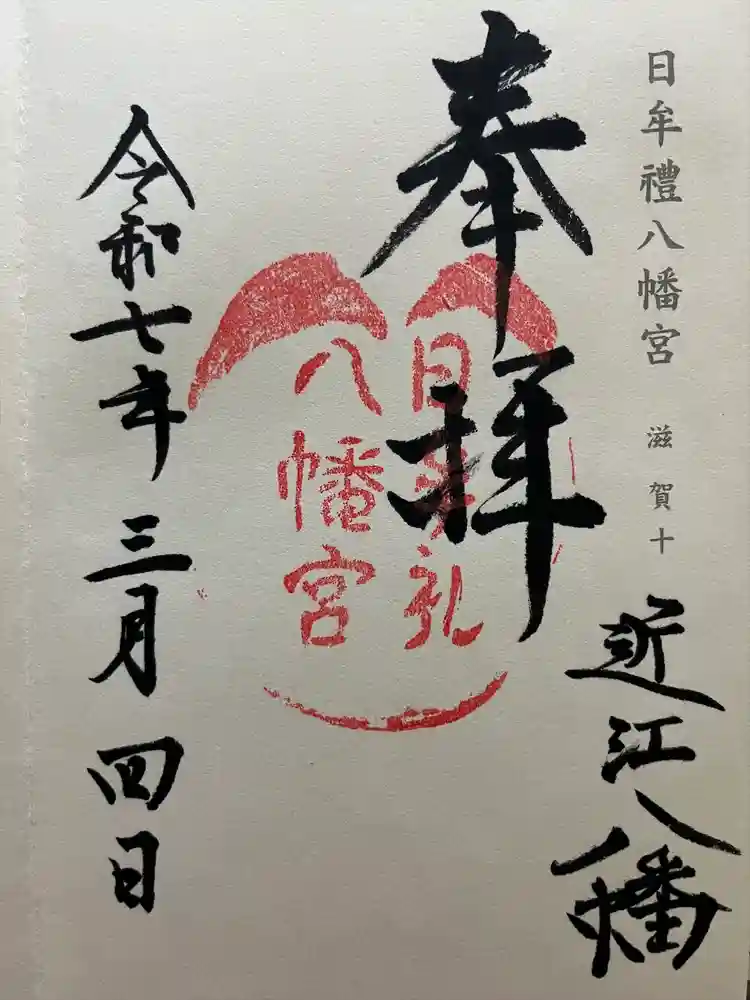 日牟禮八幡宮 滋賀十
近江八幡
奉拝
日牟礼
八幡宮
令和七年三月四日